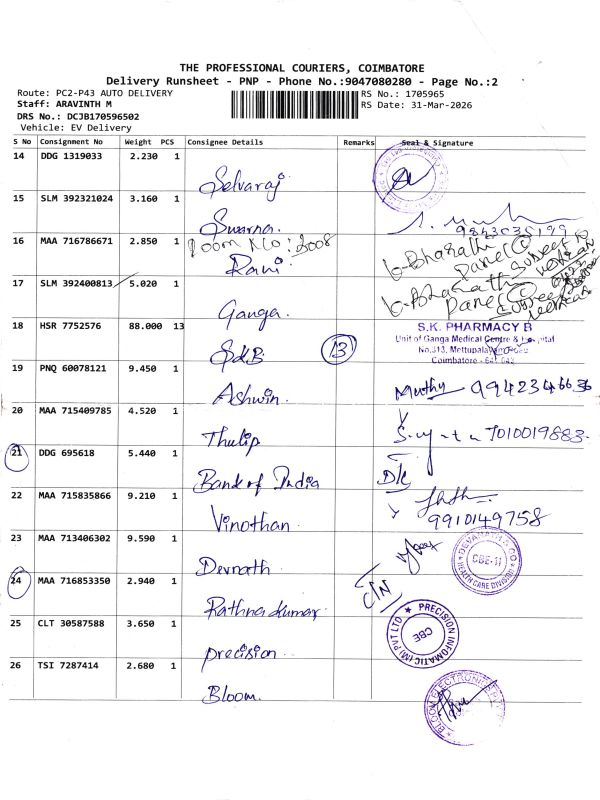 THE PROFESSIONAL COURIERS, COIMBATORE
Delivery Runsheet - PNP - Phone No.:9047080280 - Page No.:2
Route: PC2-P43 AUTO DELIVERY
RS No.: 1705965
Staff: ARAVINTH M
RS Date: 31-Mar-2026
DRS No.: DCJB170596502
Vehicle: EV Delivery
S No Consignment No Weight PCS Consignee Details Remarks Seal & Signature
14 DDG 1319033 2.230 1
Selvaraj
15 SLM 392321024 3.160 1
Swarna
16 MAA 716786671 2.850 1
Room No: 2008
Rani
G-Bharathi
Panel
17 SLM 392400813 5.020 1
Ganga
G-Bharathi
Panel
18 HSR 7752576 88.000 13
SKB
13
S.K. PHARMACY B
Unit of Ganga Medical Centre & Hospital
No,313, Mettupalayam Road
Coimbatore - 641 043
19 PNQ 60078121 9.450 1
Ashwin
Muthy 9942346636
20 MAA 715409785 4.520 1
Thulip
7010019883
21 DDG 695618 5.440 1
Bank of India
D/L
22 MAA 715835866 9.210 1
Vinothan
9910149758
23 MAA 713406302 9.590 1
Devnath
DEVANATH & CO
CBE-11
HEALTH CARE DIVISION
24 MAA 716853350 2.940 1
Rathna kumar
C/N
25 CLT 30587588 3.650 1
precision
PRECISION INFOMATIC (M) PVT LTD
CBE
26 TSI 7287414 2.680 1
Bloom
BLOOM ELECTRONICS